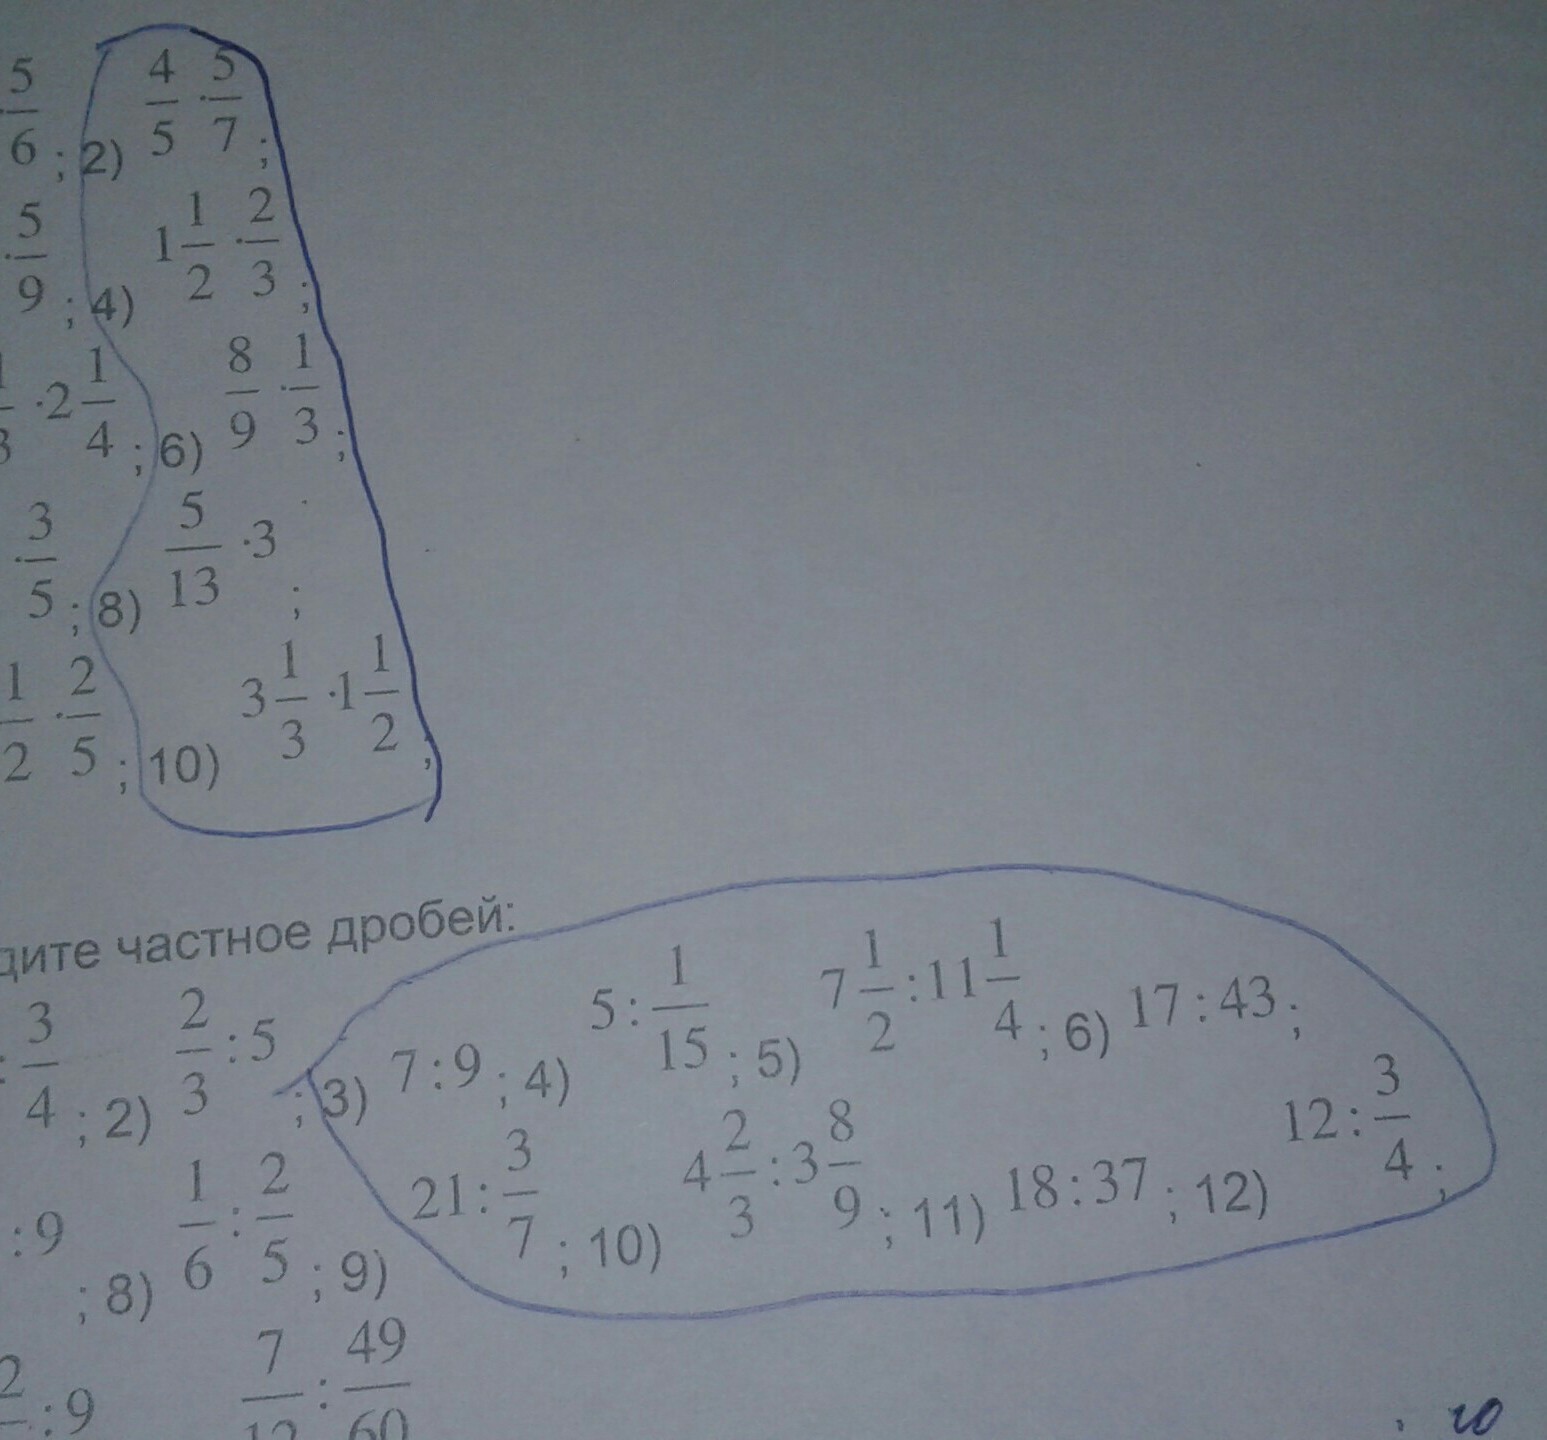 5/6 ; 2) 4/5 · 5/7 ;
· 5/9 ; 4) 1 1/2 · 2/3 ;
· 2 1/4 ; 6) 8/9 · 1/3 ;
· 3/5 ; 8) 5/13 · 3 ;
1/2 · 2/5 ; 10) 3 1/3 · 1 1/2 ;
дите частное дробей:
: 3/4 ; 2) 2/3 : 5 ; 3) 7 : 9 ; 4) 5 : 1/15 ; 5) 7 1/2 : 11 1/4 ; 6) 17 : 43 ;
: 9 ; 8) 1/6 : 2/5 ; 9) 21 : 3/7 ; 10) 4 2/3 : 3 8/9 ; 11) 18 : 37 ; 12) 12 : 3/4 ;
: 9 7/12 : 49/60